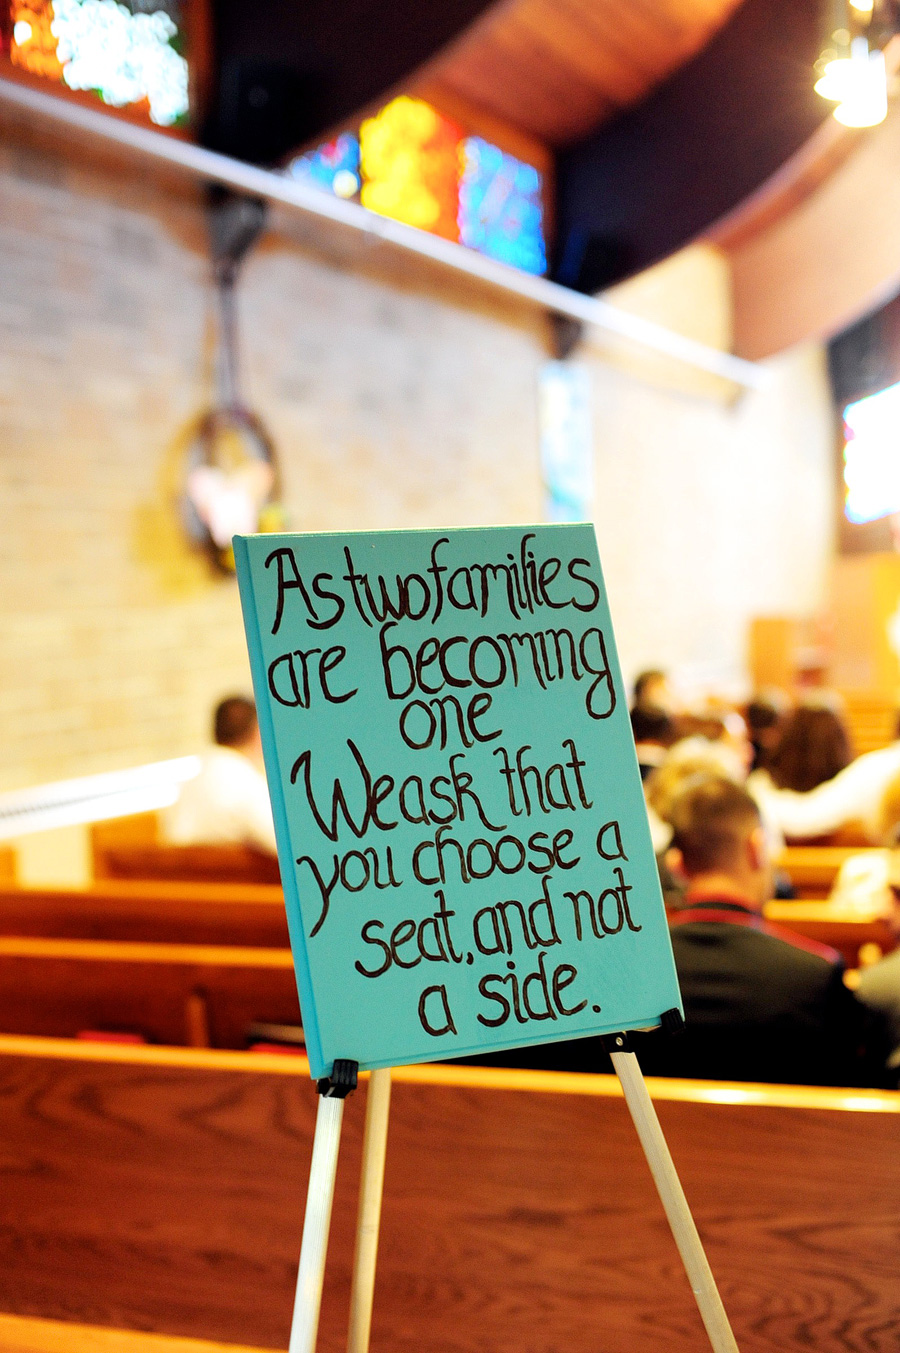 As two families
are becoming
one
We ask that
you choose a
seat, and not
a side.